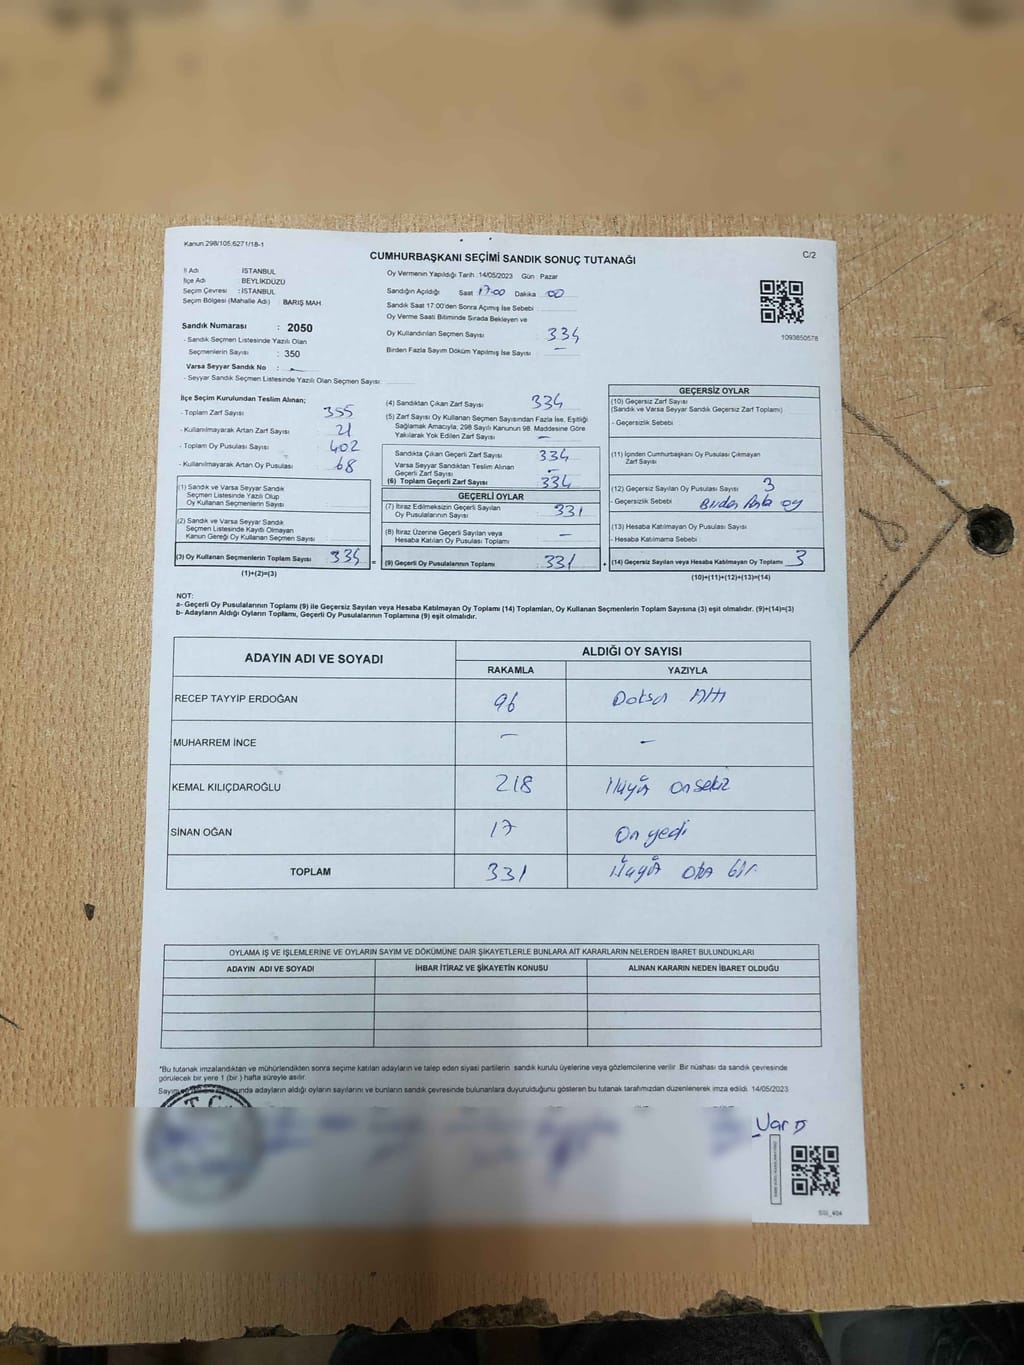 Kanun:298/105,6271/18-1
CUMHURBAŞKANI SEÇİMİ SANDIK SONUÇ TUTANAĞI
C/2
İl Adı İSTANBUL
İlçe Adı BEYLİKDÜZÜ
Seçim Çevresi : İSTANBUL
Seçim Bölgesi (Mahalle Adı) BARIŞ MAH.
Oy Vermenin Yapıldığı Tarih :14/05/2023 Gün : Pazar
Sandığın Açıldığı Saat 17:00 Dakika 00
Sandık Saat 17:00'den Sonra Açımış İse Sebebi
Oy Verme Saati Bitiminde Sırada Bekleyen ve
Oy Kullandırılan Seçmen Sayısı 334
Birden Fazla Sayım Döküm Yapılmış İse Sayısı —
1093850578
Sandık Numarası : 2050
- Sandık Seçmen Listesinde Yazılı Olan
Seçmenlerin Sayısı : 350
Varsa Seyyar Sandık No :
- Seyyar Sandık Seçmen Listesinde Yazılı Olan Seçmen Sayısı:
İlçe Seçim Kurulundan Teslim Alınan;
- Toplam Zarf Sayısı 355
- Kullanılmayarak Artan Zarf Sayısı 21
- Toplam Oy Pusulası Sayısı 402
- Kullanılmayarak Artan Oy Pusulası 68
(1) Sandık ve Varsa Seyyar Sandık
Seçmen Listesinde Yazılı Olup
Oy Kullanan Seçmenlerin Sayısı
(2) Sandık ve Varsa Seyyar Sandık
Seçmen Listesinde Kayıtlı Olmayan
Kanun Gereği Oy Kullanan Seçmen Sayısı
(3) Oy Kullanan Seçmenlerin Toplam Sayısı 334
(1)+(2)=(3)
(4) Sandıktan Çıkan Zarf Sayısı 334
(5) Zarf Sayısı Oy Kullanan Seçmen Sayısından Fazla İse, Eşitliği
Sağlamak Amacıyla, 298 Sayılı Kanunun 98. Maddesine Göre
Yakılarak Yok Edilen Zarf Sayısı —
Sandıkta Çıkan Geçerli Zarf Sayısı 334
Varsa Seyyar Sandıktan Teslim Alınan
Geçerli Zarf Sayısı —
(6) Toplam Geçerli Zarf Sayısı 334
GEÇERLİ OYLAR
(7) İtiraz Edilmeksizin Geçerli Sayılan
Oy Pusulalarının Sayısı 331
(8) İtiraz Üzerine Geçerli Sayılan veya
Hesaba Katılan Oy Pusulası Toplamı —
= (9) Geçerli Oy Pusulalarının Toplamı 331
GEÇERSİZ OYLAR
(10) Geçersiz Zarf Sayısı
(Sandık ve Varsa Seyyar Sandık Geçersiz Zarf Toplamı)
- Geçersizlik Sebebi
(11) İçinden Cumhurbaşkanı Oy Pusulası Çıkmayan
Zarf Sayısı
(12) Geçersiz Sayılan Oy Pusulası Sayısı 3
- Geçersizlik Sebebi Birden fazla oy
(13) Hesaba Katılmayan Oy Pusulası Sayısı
- Hesaba Katılmama Sebebi
+ (14) Geçersiz Sayılan veya Hesaba Katılmayan Oy Toplamı 3
(10)+(11)+(12)+(13)=(14)
NOT:
a- Geçerli Oy Pusulalarının Toplamı (9) ile Geçersiz Sayılan veya Hesaba Katılmayan Oy Toplamı (14) Toplamları, Oy Kullanan Seçmenlerin Toplam Sayısına (3) eşit olmalıdır. (9)+(14)=(3)
b- Adayların Aldığı Oyların Toplamı, Geçerli Oy Pusulalarının Toplamına (9) eşit olmalıdır.
ADAYIN ADI VE SOYADI
ALDIĞI OY SAYISI
RAKAMLA YAZIYLA
RECEP TAYYİP ERDOĞAN 96 Doksan Altı
MUHARREM İNCE — —
KEMAL KILIÇDAROĞLU 218 İkiyüz onsekiz
SİNAN OĞAN 17 On yedi
TOPLAM 331 Üçyüz otuz bir
OYLAMA İŞ VE İŞLEMLERİNE VE OYLARIN SAYIM VE DÖKÜMÜNE DAİR ŞİKAYETLERLE BUNLARA AİT KARARLARIN NELERDEN İBARET BULUNDUKLARI
ADAYIN ADI VE SOYADI İHBAR İTİRAZ VE ŞİKAYETİN KONUSU ALINAN KARARIN NEDEN İBARET OLDUĞU
"Bu tutanak imzalandıktan ve mühürlendikten sonra seçime katılan adayların ve talep eden siyasi partilerin sandık kurulu üyelerine veya gözlemcilerine verilir. Bir nüshası da sandık çevresinde
görülecek bir yere 1 (bir ) hafta süreyle asılır.
Sayım sunda adayların aldığı oyların sayılarını ve bunların sandık çevresinde bulunanlara duyurulduğunu gösteren bu tutanak tarafımızdan düzenlenerek imza edildi. 14/05/2023
T.C.